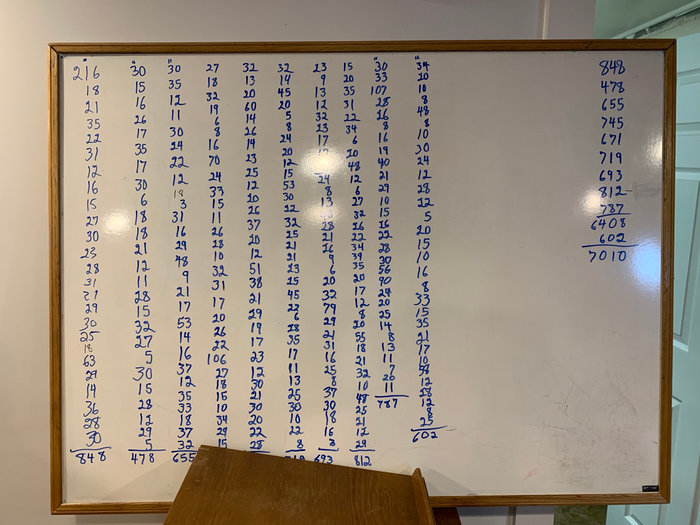 216
18
21
35
22
31
12
16
15
27
30
23
28
31
27
29
30
25
18
63
29
14
36
28
30
848
30
15
16
26
17
35
17
30
6
18
18
21
12
11
28
15
32
27
5
30
15
28
12
29
5
478
30
35
12
11
30
24
22
12
19
3
31
16
29
48
9
21
17
53
14
16
37
12
35
33
18
37
32
655
27
18
32
19
6
8
16
70
24
33
15
11
26
28
10
32
31
17
20
26
22
106
27
18
10
34
29
15
32
13
20
60
14
26
14
23
25
12
20
26
37
20
12
51
38
21
29
19
17
23
12
30
21
30
20
22
28
32
14
45
20
5
8
24
20
12
15
53
30
22
32
25
21
21
23
15
45
22
6
28
35
17
11
13
25
30
10
22
8
23
9
13
12
32
23
17
24
8
13
28
21
16
9
6
20
32
79
29
21
31
16
25
8
37
30
18
16
3
693
15
20
35
31
22
34
6
20
48
12
6
27
32
16
22
34
39
35
20
17
12
8
20
55
18
21
32
10
48
25
21
12
29
812
30
33
107
28
16
8
16
19
40
21
29
10
15
16
22
28
30
56
90
24
20
25
14
8
13
11
7
20
11
787
34
20
10
8
48
8
10
30
24
12
28
22
5
20
15
10
16
8
33
15
35
21
17
10
58
12
28
12
8
25
602
848
478
655
745
671
719
693
812
787
6408
602
7010